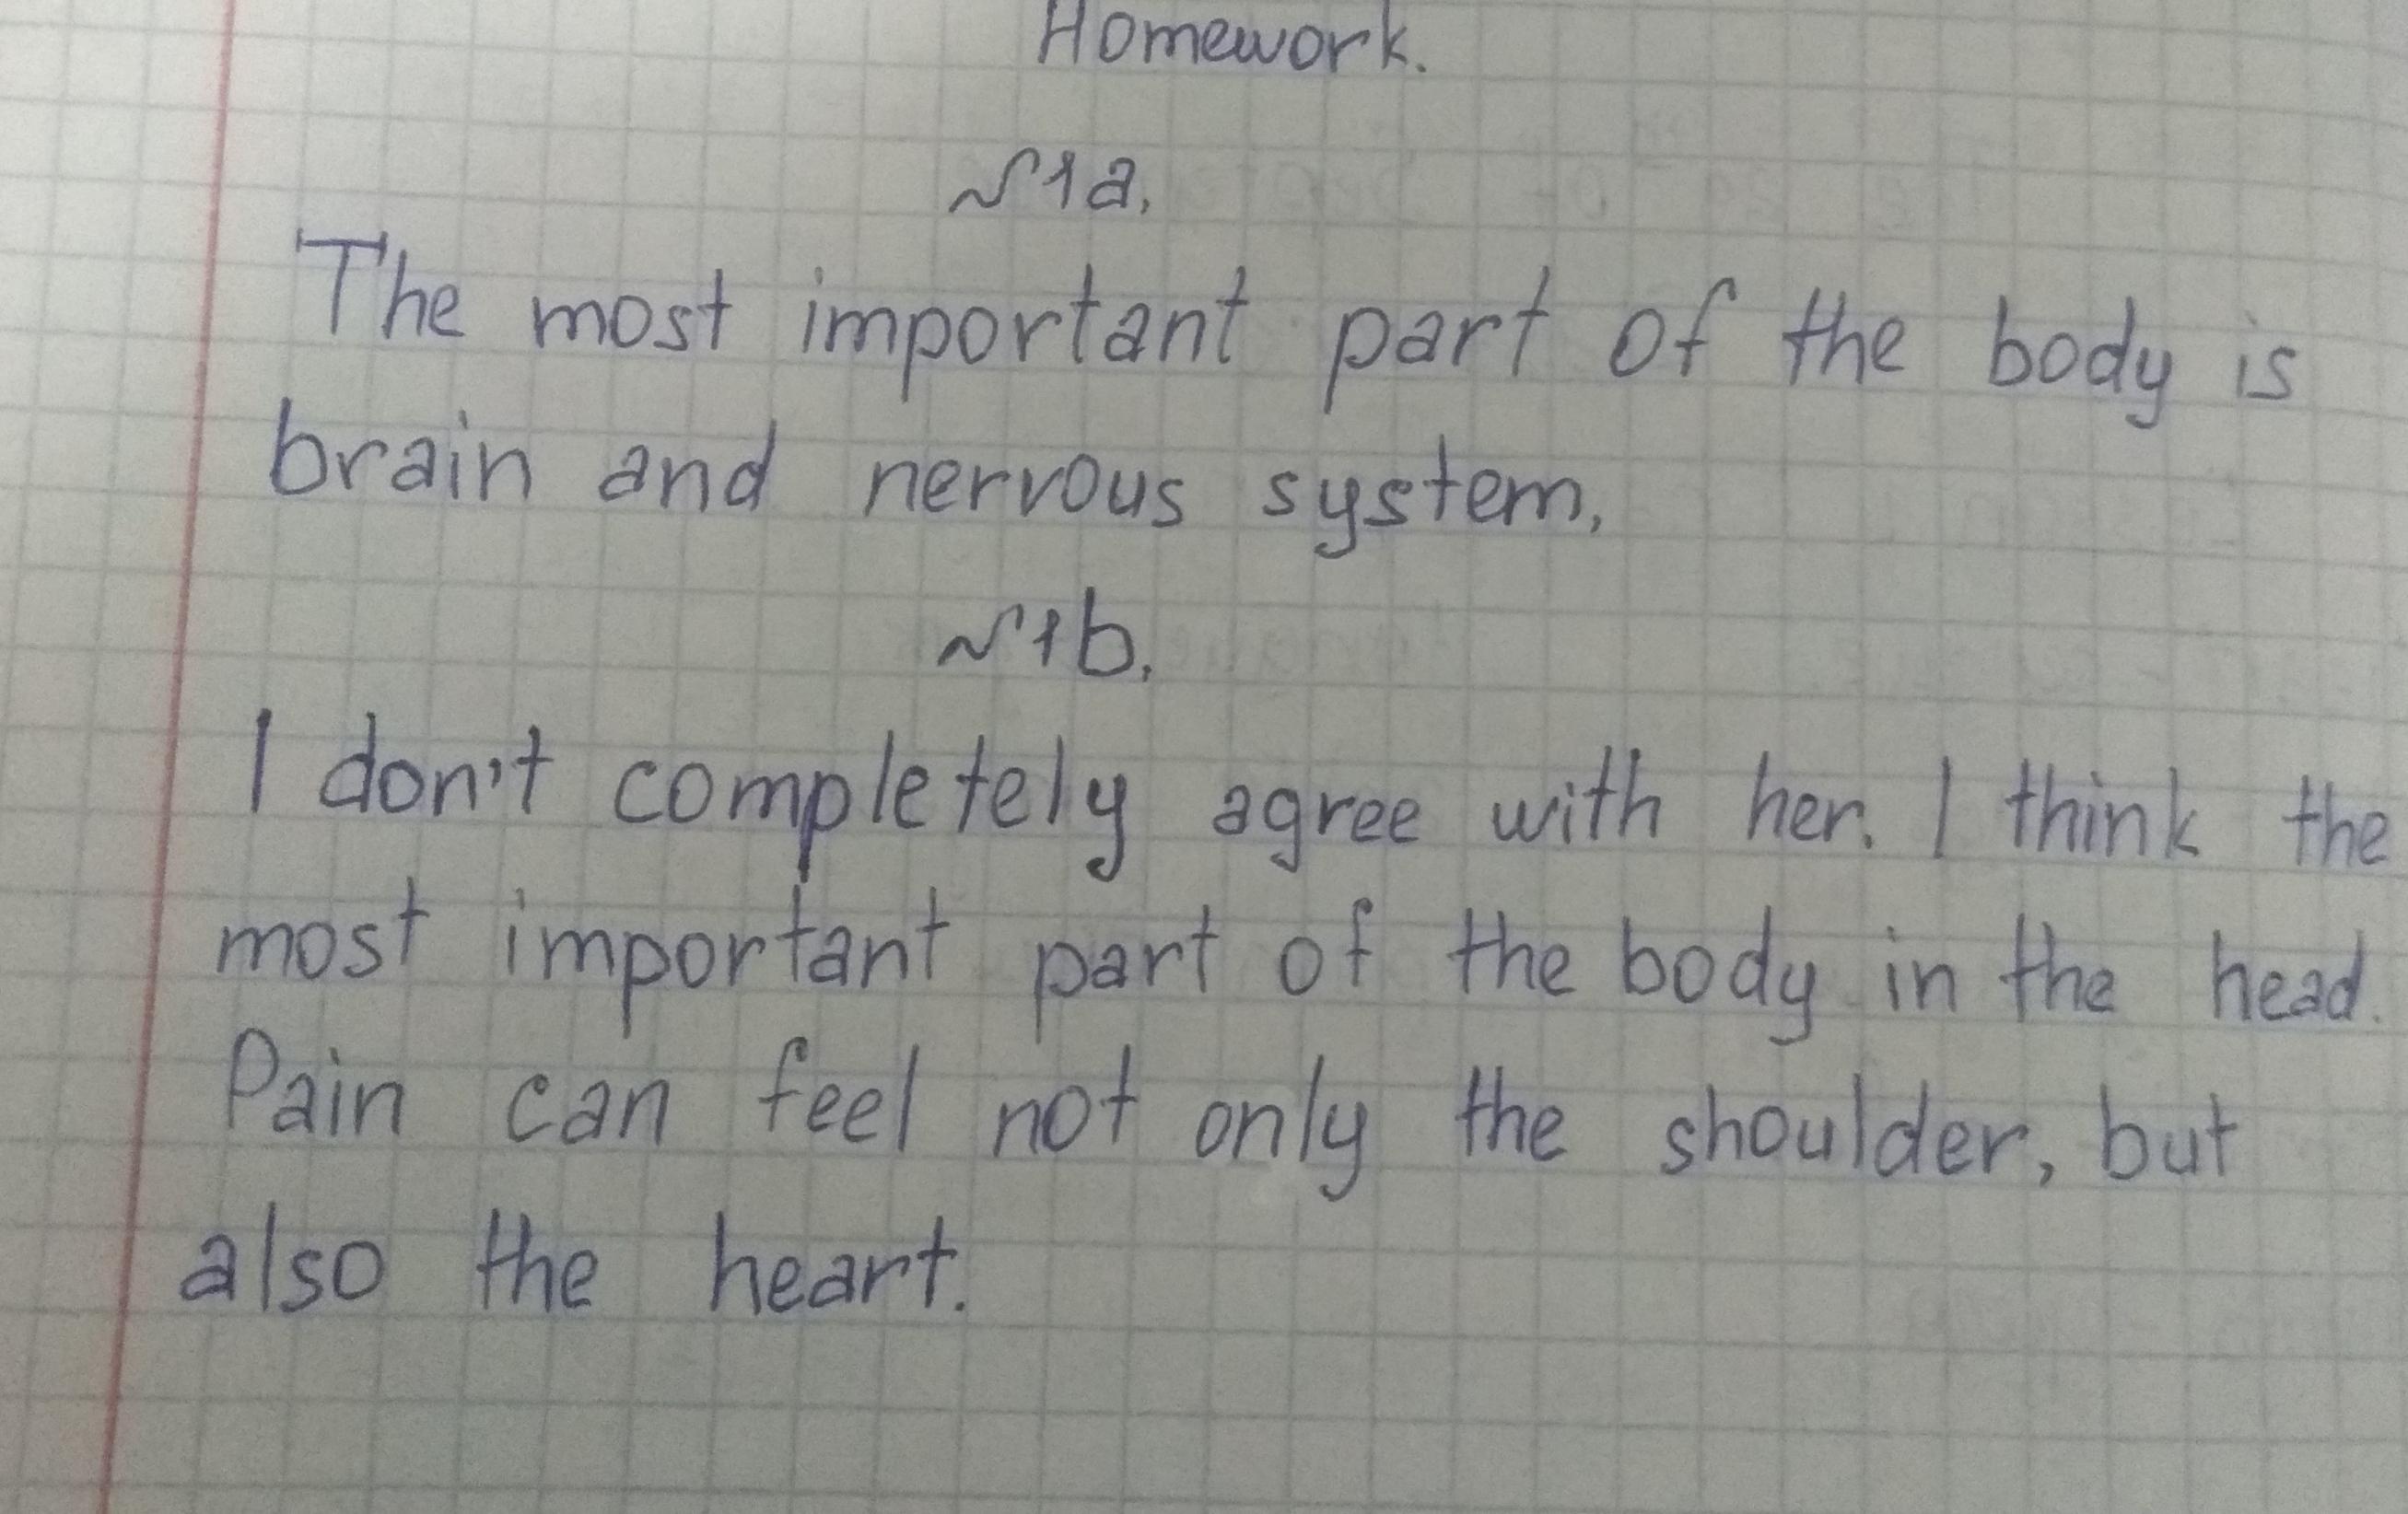 Homework.
№1a.
The most important part of the body is
brain and nervous system.
№1b.
I don't completely agree with her. I think the
most important part of the body in the head.
Pain can feel not only the shoulder, but
also the heart.